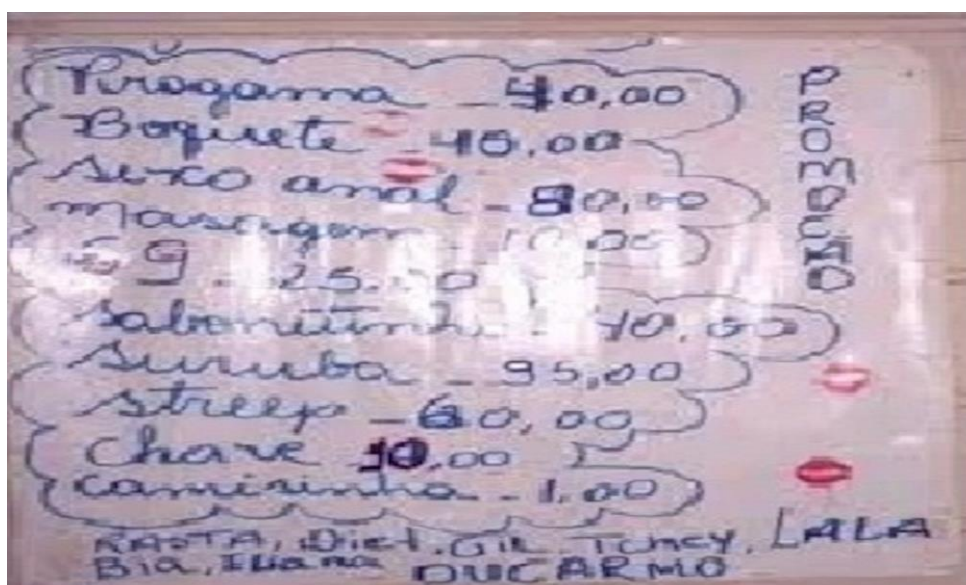 Pirogama - 40,00
Boquete - 40.00
Sexo anal - 80,00
Masagem - 10,00
69 - 25.00
Sabonetinho - 40,00
Suruba - 95,00
Streep - 60,00
Chave 10,00
camisinha - 1,00
PROMOÇÃO
RASTA, Diet, Gil, Tchcy, LALA
Bia, Eliana DUCARMO